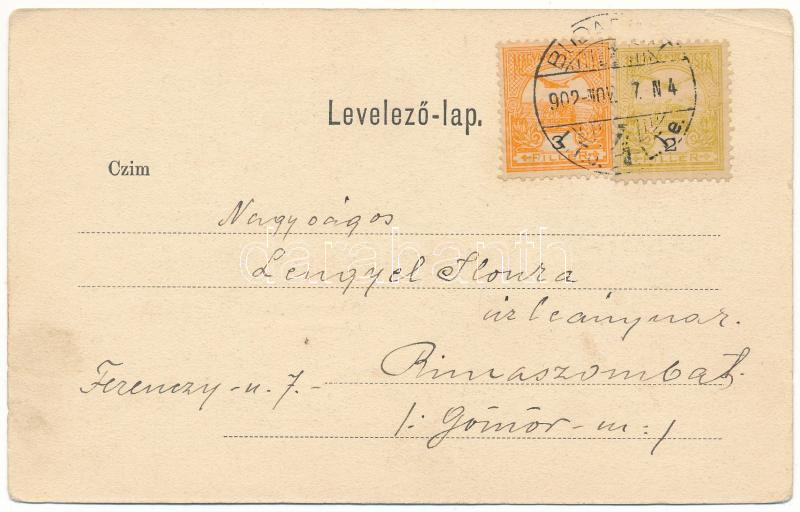 Levelező-lap.
Czim
BUDAPEST
902-NOV. 7. N 4
3
FILLÉR
2
FILLÉR
Nagyságos
Lengyel Ilonka
úrleánynak.
Rimaszombat.
Ferenczy-u. 7.-
/: Gömör-m: /
darabanth